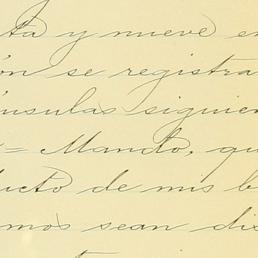 ta y nueve en
ón se registra
ánsulas siguien
= Mando, qu
ducto de mis b
mos sean dis